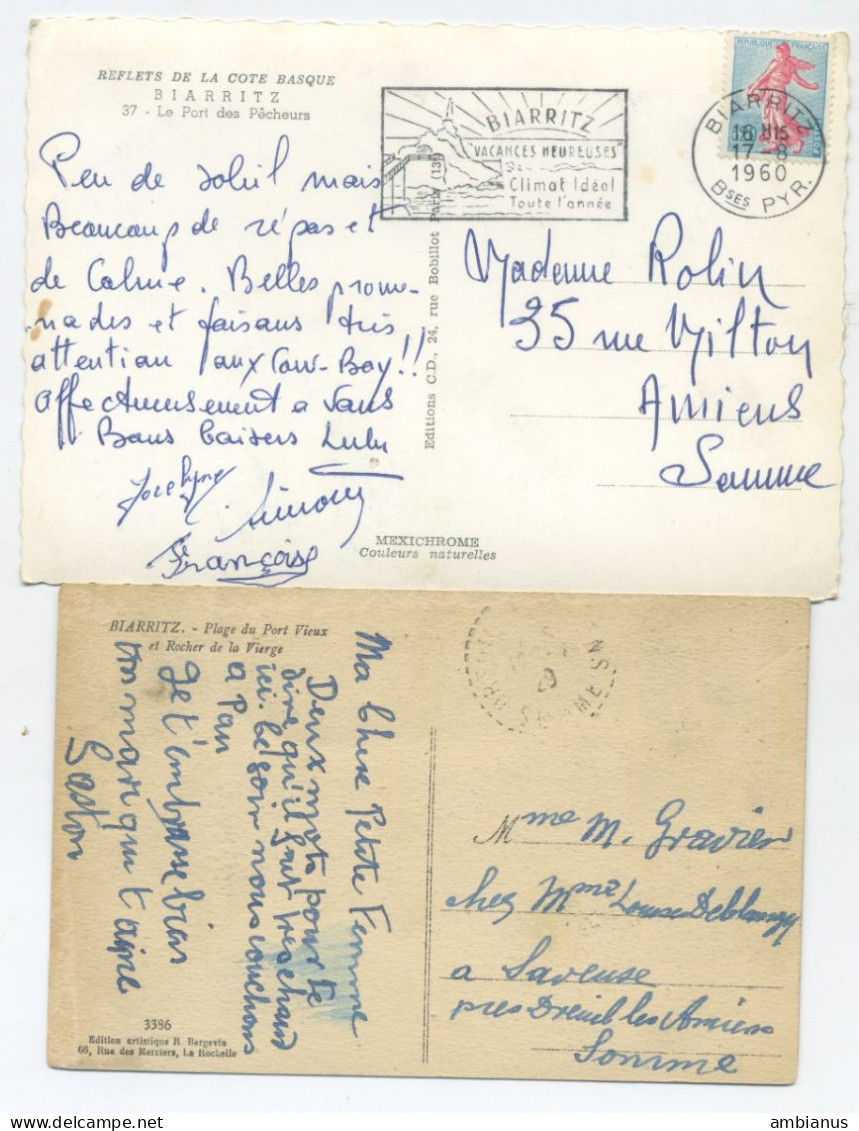 REFLETS DE LA COTE BASQUE
BIARRITZ
37 - Le Port des Pêcheurs
Peu de soleil mais
Beaucoup de répas et
de Calme. Belles prome-
nades et faisans très
attention aux Cow-Boy!!
Affectueusement a Vous
Bons baisers Lulu
Jocelyne
Simone
Françoise
Editions C.D., 24, rue Bobillot Paris (13e)
MEXICHROME
Couleurs naturelles
BIARRITZ
"VACANCES HEUREUSES"
Climat Idéal
Toute l'année
REPUBLIQUE FRANÇAISE
BIARRITZ
17-8
1960
BSES PYR.
Madame Rolin
35 rue Milton
Amiens
Somme
BIARRITZ. - Plage du Port Vieux
et Rocher de la Vierge
Ma Chere Petite Femme
Deux mots pour te
dire qu'il fait tres chaud
ici. Ce soir nous couchons
a Pau
Je t'embrasse bien
ton mari qui t'aime
Gaston
3386
Edition artistique R. Bergevin
66, Rue des Merciers, La Rochelle
SOMME
Mme M. Gravier
chez Mme Louise Deblangy
a Saveuse
pres Dreuil les Amiens
Somme
ambianus